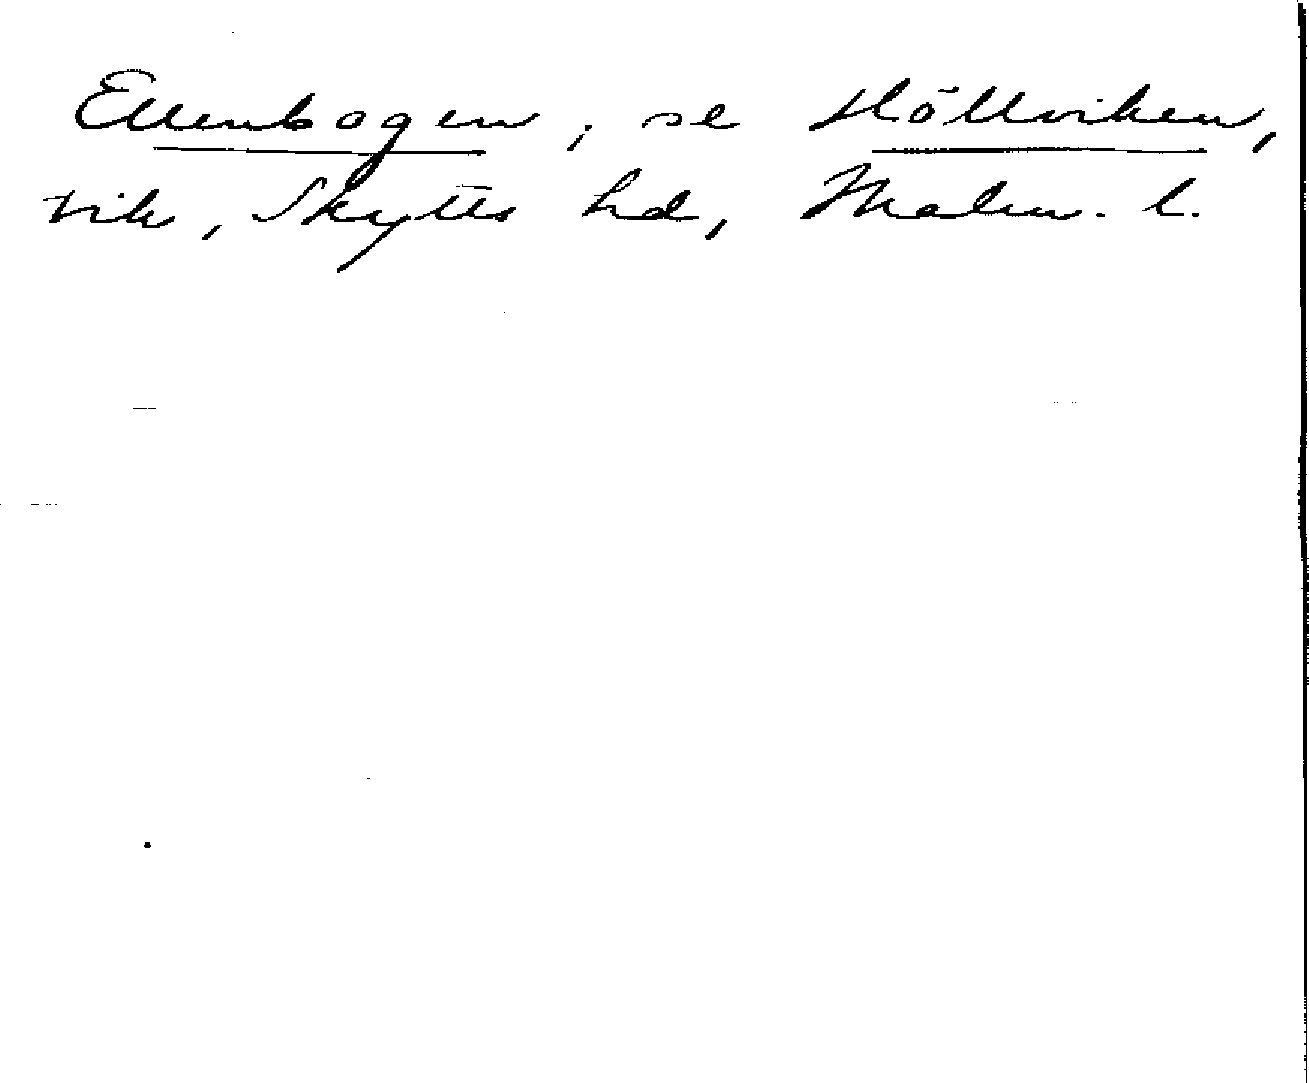 Ellenbogen, se Höllviken,
vik, Skytts hd, Malm. l.